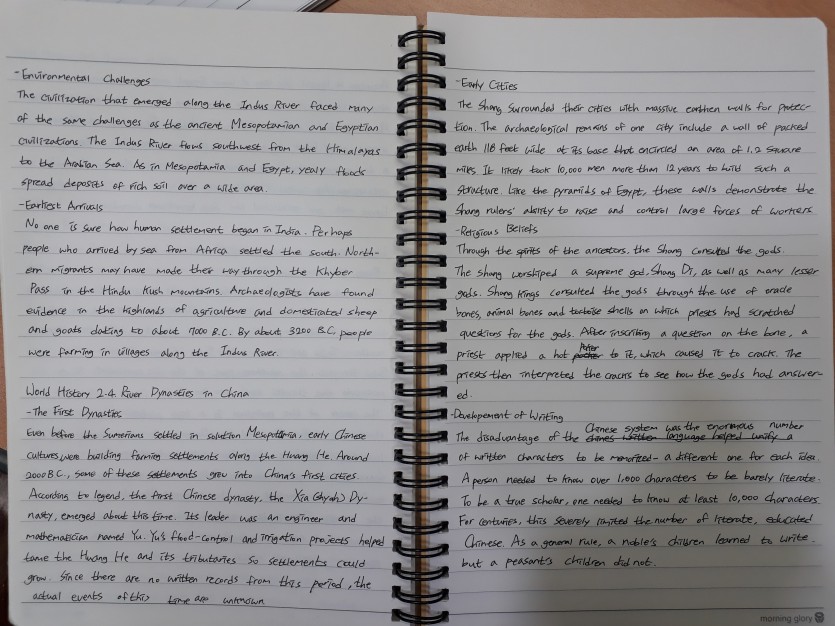 -Environmental Challenges
The civilization that emerged along the Indus River faced many
of the same challenges as the ancient Mesopotamian and Egyptian
civilizations. The Indus River flows southwest from the Himalayas
to the Arabian Sea. As in Mesopotamia and Egypt, yealy floods
spread deposits of rich soil over a wide area.
-Earliest Arrivals
No one is sure how human settlement began in India. Perhaps
people who arrived by sea from Africa settled the south. North-
ern migrants may have made their way through the Khyber
Pass in the Hindu Kush mountains. Archaeologists have found
evidence in the highlands of agriculture and domesticated sheep
and goats dating to about 7000 B.C. By about 3200 B.C, people
were farming in villages along the Indus River.
World History 2-4 River Dynasties in China
-The First Dynasties
Even before the Sumerians settled in solution Mesopotamia, early Chinese
cultures were building farming settlements along the Huang He. Around
2000 B.C., some of these settlements grew into China's first cities.
According to legend, the first Chinese dynasty, the Xia (shyah) Dy-
nasty, emerged about this time. Its leader was an engineer and
mathematician named Yu. Yu's flood-control and irrigation projects helped
tame the Huang He and its tributaries so settlements could
grow. Since there are no written records from this period, the
actual events of this time are unknown
-Early Cities
The Shang surrounded their cities with massive earthen walls for protec-
tion. The archaeological remains of one city include a wall of packed
earth 118 feet wide at its base that encircled an area of 1.2 square
miles. It likely took 10,000 men more than 12 years to build such a
structure. Like the pyramids of Egypt, these walls demonstrate the
Shang rulers' ability to raise and control large forces of workers
-Religious Beliefs
Through the spirits of the ancestors, the Shang consulted the gods.
The Shang worshiped a supreme god, Shang Di, as well as many lesser
gods. Shang kings consulted the gods through the use of oracle
bones, animal bones and tortoise shells on which priests had scratched
questions for the gods. After inscribing a question on the bone, a
priest applied a hot poker to it, which caused it to crack. The
priests then interpreted the cracks to see how the gods had answer-
ed.
-Developement of Writing
The disadvantage of the Chinese system was the enormous number
of written characters to be memorized- a different one for each idea.
A person needed to know over 1,000 characters to be barely literate.
To be a true scholar, one needed to know at least 10,000 characters.
For centuries, this severely limited the number of literate, educated
Chinese. As a general rule, a noble's children learned to write
but a peasant's children did not.
morning glory